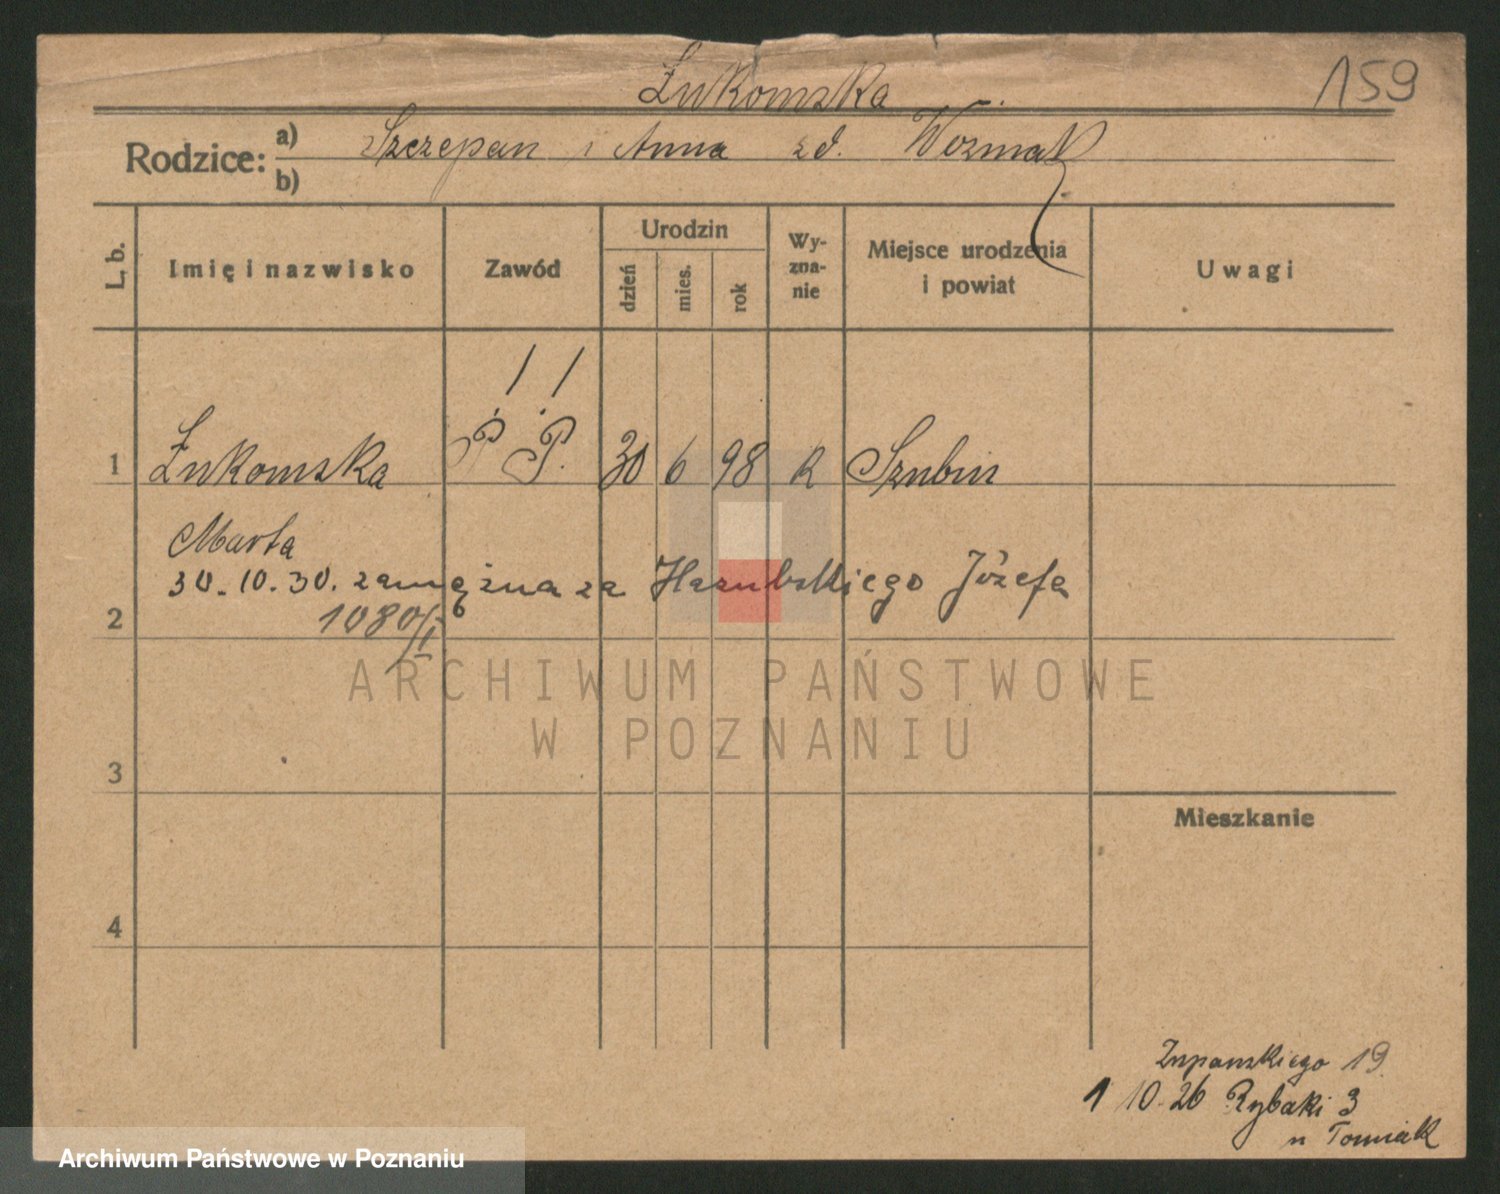 Łukomska
159
Rodzice: a) Szczepan i Anna zd. Wozniak
b)
L. b. Imię i nazwisko Zawód Urodzin dzień mies. rok Wyzna-nie Miejsce urodzenia i powiat Uwagi
1 Łukomska P. P. 30 6 98 R Szubin
Marta
30.10.30. zamężna za Józefa
2 1080/I
ARCHIWUM PAŃSTWOWE
W POZNANIU
3
Mieszkanie
4
Zupanskiego 19
1 10.26 Rybaki 3
u Tomiak
Archiwum Państwowe w Poznaniu